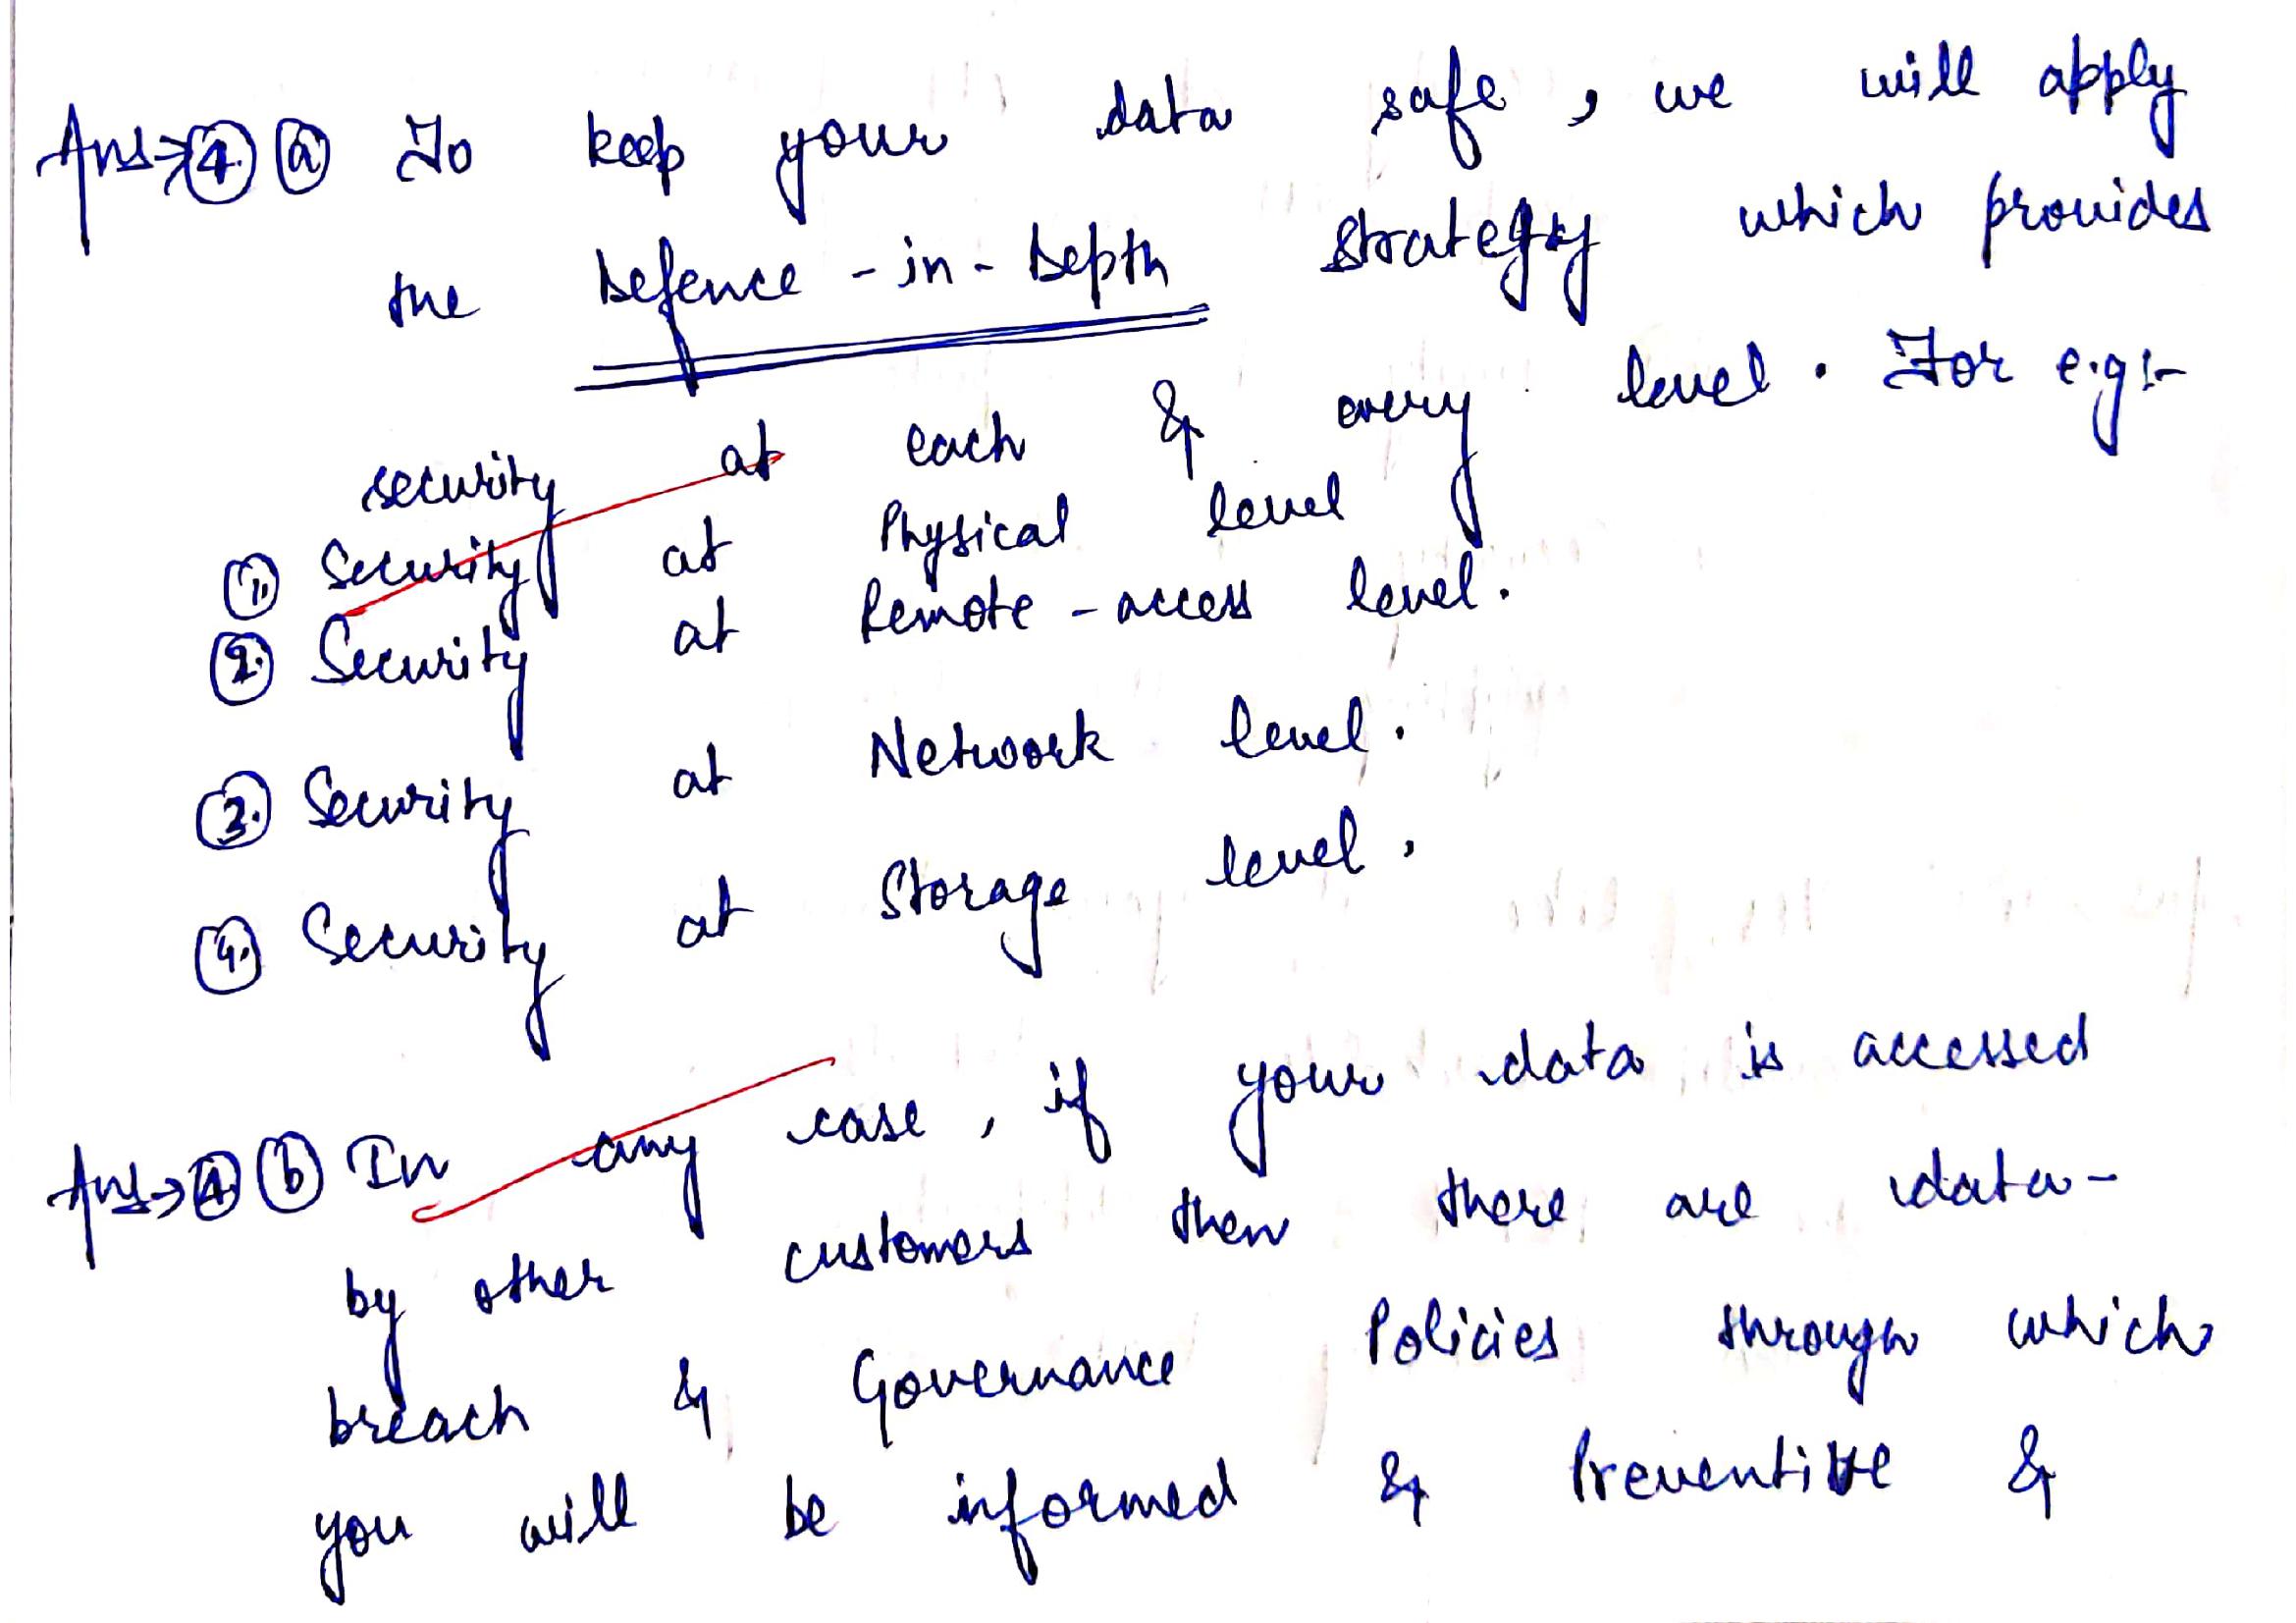 Ans→④ ⓐ To keep your data safe, we will apply
the Defence-in-Depth strategy which provides
security at each & every level. For e.g:-
① Security at Physical level
② Security at Remote-access level.
③ Security at Network level.
④ Security at Storage level.
Ans→④ ⓑ In any case, if your data is accessed
by other customers then there are data-
breach & Governance Policies through which
you will be informed & Preventive &